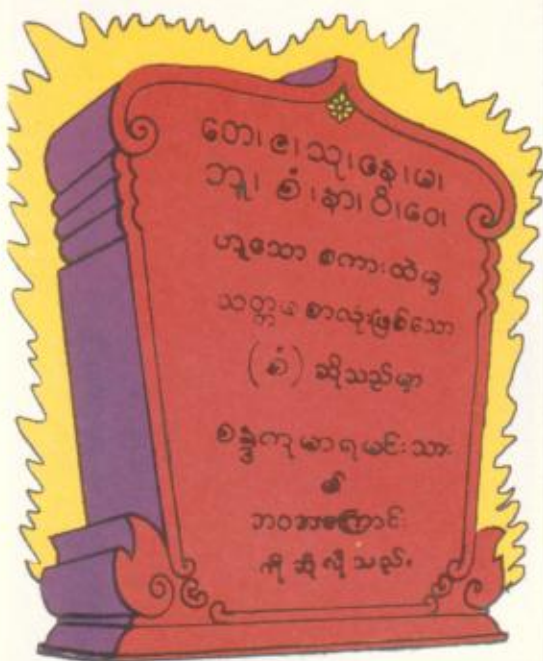 တေ၊ ဇ၊ သု၊ နေ၊ မ၊
ဘူ၊ စံ၊ နာ၊ ဝိ၊ ဝေ၊
ဟူသော စကားထဲမှ
သတ္တမ စာလုံးဖြစ်သော
(စံ) ဆိုသည်မှာ
စန္ဒကုမာရမင်းသား
၏
ဘဝအကြောင်း
ကို ဆိုလိုသည်။